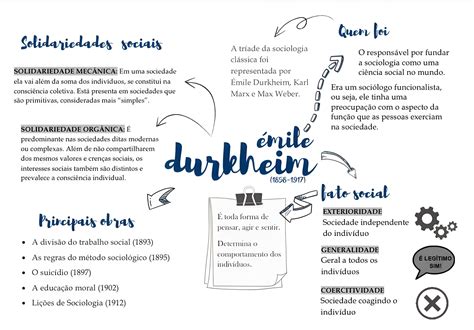 Solidariedades sociais
SOLIDARIEDADE MECÂNICA: Em uma sociedade
ela vai além da soma dos indivíduos, se constitui na
consciência coletiva. Está presente em sociedades que
são primitivas, consideradas mais "simples".
SOLIDARIEDADE ORGÂNICA: É
predominante nas sociedades ditas modernas
ou complexas. Além de não compartilharem
dos mesmos valores e crenças sociais, os
interesses sociais também são distintos e
prevalece a consciência individual.
A tríade da sociologia
clássica foi
representada por
Émile Durkheim, Karl
Marx e Max Weber.
Quem foi
O responsável por fundar
a sociologia como uma
ciência social no mundo.
Era um sociólogo funcionalista,
ou seja, ele tinha uma
preocupação com o aspecto da
função que as pessoas exerciam
na sociedade.
émile
durkheim
(1858-1917)
Principais obras
• A divisão do trabalho social (1893)
• As regras do método sociológico (1895)
• O suicídio (1897)
• A educação moral (1902)
• Lições de Sociologia (1912)
É toda forma de
pensar, agir e sentir.
Determina o
comportamento dos
indivíduos.
fato social
EXTERIORIDADE
Sociedade independente
do indivíduo
GENERALIDADE
Geral a todos os
indivíduos
É LEGÍTIMO
SIM!
COERCITIVIDADE
Sociedade coagindo o
indivíduo